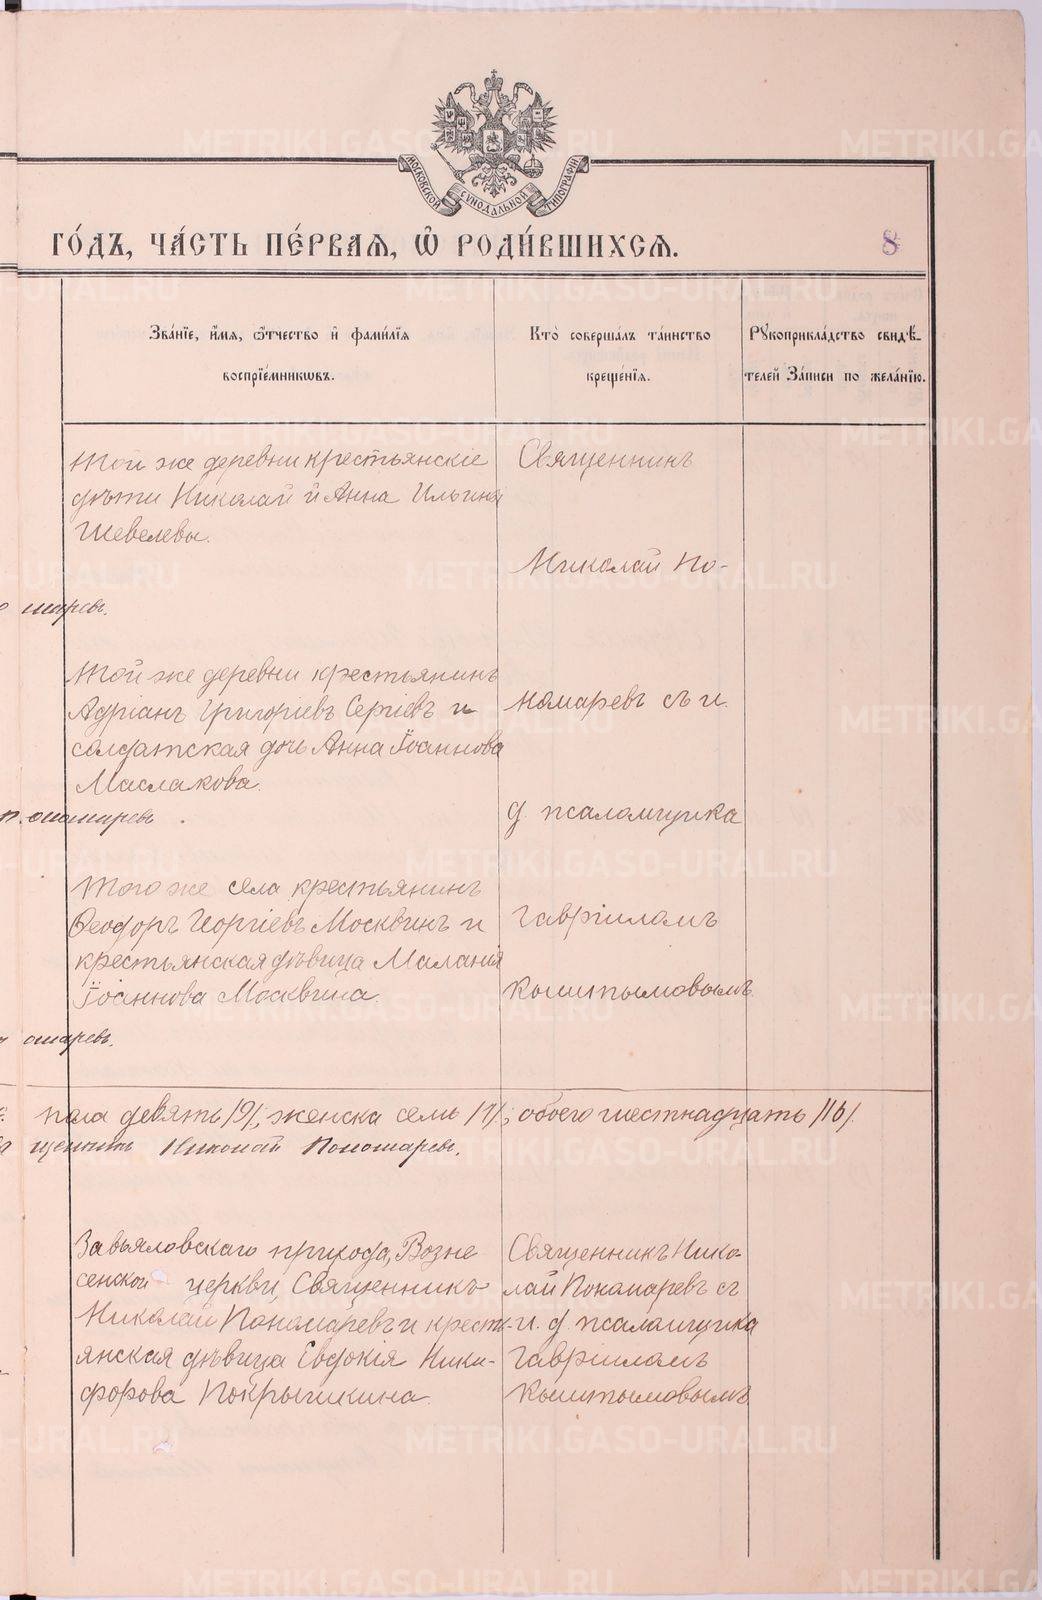 МОСКОВСКОЙ СѴНОДАЛЬНОЙ ТИПОГРАФІИ
ГО́ДЪ, ЧА́СТЬ ПЕ́РВАѦ, Ѽ РОДИ́ВШИХСѦ.
8
Зва́нїе, и҆́мѧ, ѻ҆́тчество и҆ фами́лїѧ
воспрїе́мникѡвъ.
Кто̀ соверша́лъ та́инство
креще́нїѧ.
Рꙋкоприкла́дство свидѣ́-
телей За́писи по жела́нїю.
Той же деревни крестьянскіе
дѣти Николай и Анна Ильины
Шевелевы.
Священникъ
Николай По-
номаревъ съ и.
д. псаломщика
Гавріиломъ
Кыштымовымъ.
омаревъ.
Той же деревни крестьянинъ
Адріанъ Григоріевъ Сергіевъ и
солдатская дочь Анна Іоаннова
Маслакова.
Пономаревъ.
Того же села крестьянинъ
Ѳеодоръ Георгіевъ Москвинъ и
крестьянская дѣвица Маланія
Іоаннова Москвина.
омаревъ.
пола девять /9/, женска семь /7/, обоего шестнадцать /16/.
щенникъ Николай Пономаревъ.
Завьяловскаго прихода, Возне
сенской церкви, Священникъ
Николай Пономаревъ и кресть-
янская дѣвица Евдокія Ники-
форова Покрышкина.
Священникъ Нико-
лай Пономаревъ съ
и. д. псаломщика
Гавріиломъ
Кыштымовымъ.
METRIKI.GASO-URAL.RU